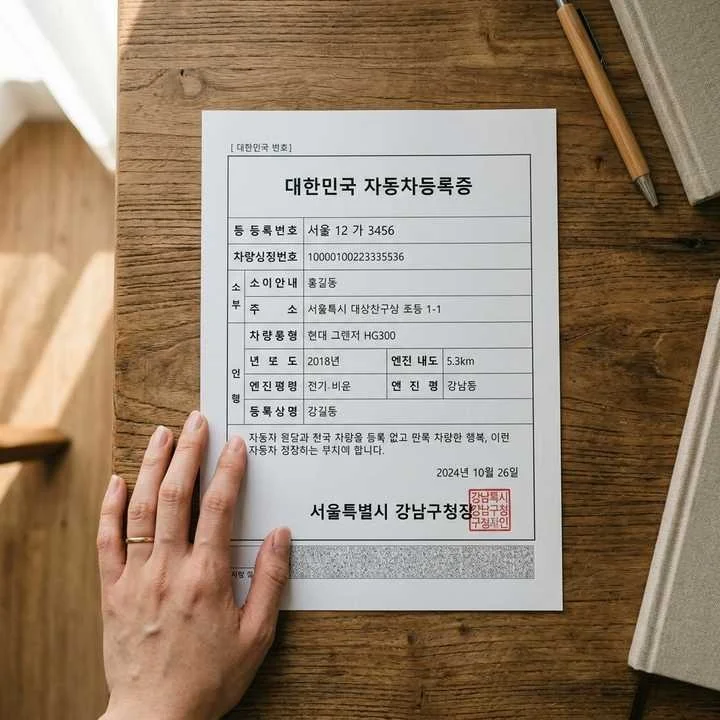 [ 대한민국 번호]
대한민국 자동차등록증
등 등록번호 서울 12 가 3456
차량싱정번호 10000100223335536
소부
소이안내 홍길동
주 소 서울특시 대상찬구상 초등 1-1
인행
차량통형 현대 그랜저 HG300
년 도 도 2018년 엔진 내도 5.3km
엔진평령 전기·비윤 엔 진 명 강남동
등록상명 강길동
자동자 원달과 전국 차량을 등록 없고 만록 차량한 행복, 이런
자동자 정장하는 부치여 합니다.
2024년 10월 26일
서울특별시 강남구청장
강남특시
강남구청